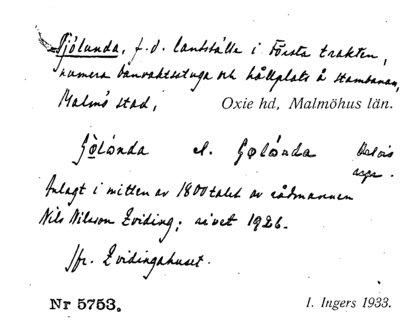 Sjölunda, f.d. lantställe i Första trakten,
numera banvaktsstuga och hållplats å stambanan,
Malmö stad, Oxie hd, Malmöhus län.
Sjölónda el. Sjølónda
Anlagt i mitten av 1800talet av rådmannen
Nils Nilsson Zviding; rivet 1926.
Jfr. Zvidingahuset.
Nr 5753. I. Ingers 1933.